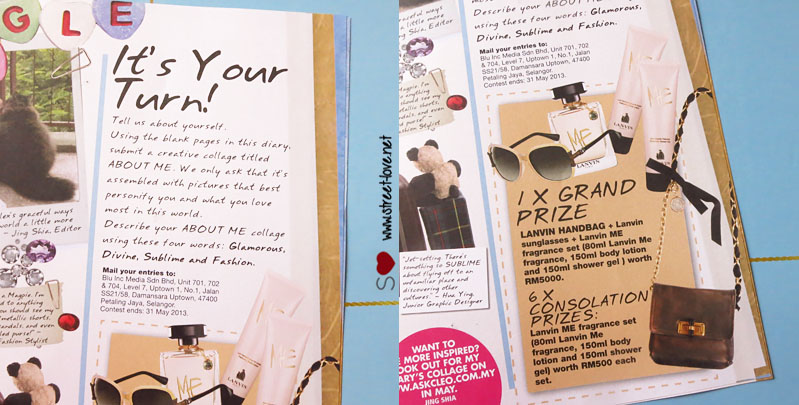 GLE
It's Your
Turn!
Tell us about yourself.
Using the blank pages in this diary,
submit a creative collage titled
ABOUT ME. We only ask that it's
assembled with pictures that best
personify you and what you love
most in this world.
Describe your ABOUT ME collage
using these four words: Glamorous,
Divine, Sublime and Fashion.
Mail your entries to:
Blu Inc Media Sdn Bhd, Unit 701, 702
& 704, Level 7, Uptown 1, No.1, Jalan
SS21/58, Damansara Uptown, 47400
Petaling Jaya, Selangor.
Contest ends: 31 May 2013.
graceful ways
world a little more
- Jing Shia, Editor
Magpie. I'm
to anything
you should see my
metallic shorts,
and even
purse" -
Fashion Stylist
ME
LANVIN
S www.street-love.net
graceful ways
a little more
Shia, Editor
Describe your ABOUT ME collage
using these four words: Glamorous,
Divine, Sublime and Fashion.
Mail your entries to:
Blu Inc Media Sdn Bhd, Unit 701, 702
& 704, Level 7, Uptown 1, No.1, Jalan
SS21/58, Damansara Uptown, 47400
Petaling Jaya, Selangor.
Contest ends: 31 May 2013.
Magpie. I'm
anything
should see my
metallic shorts,
and even
purse" -
Stylist
ME
LANVIN
ME
LANVIN
1 X GRAND
PRIZE
LANVIN HANDBAG + Lanvin
sunglasses + Lanvin Me
fragrance set (80ml Lanvin Me
fragrance, 150ml body lotion
and 150ml shower gel ) worth
RM5000.
6 X
CONSOLATION
PRIZES:
Lanvin ME fragrance set
(80ml Lanvin Me
fragrance, 150ml body
lotion and 150ml shower
gel) worth RM500 each
set.
"Jet-setting. There's
something so SUBLIME
about flying off to an
unfamiliar place and
discovering other
cultures." - Hua Ying,
Junior Graphic Designer
WANT TO
MORE INSPIRED?
LOOK OUT FOR MY
DIARY'S COLLAGE ON
WWW.ASKCLEO.COM.MY
IN MAY.
JING SHIA